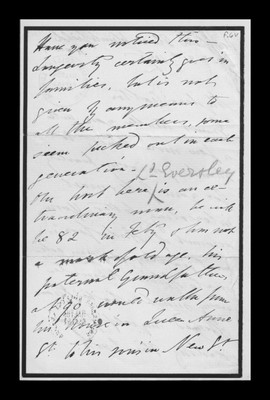 Have you noticed this —
Longevity certainly goes in
families, but is not
given by any means to
all the members, some
seem picked out in each
generation — Ld Eversley
the host here is an ex-
traordinary man, he will
be 82 in Feby & has not
a mark of old age. his
paternal Grandfather
at 90 would walk from
his House in Queen Anne
St. to his sons in New St.